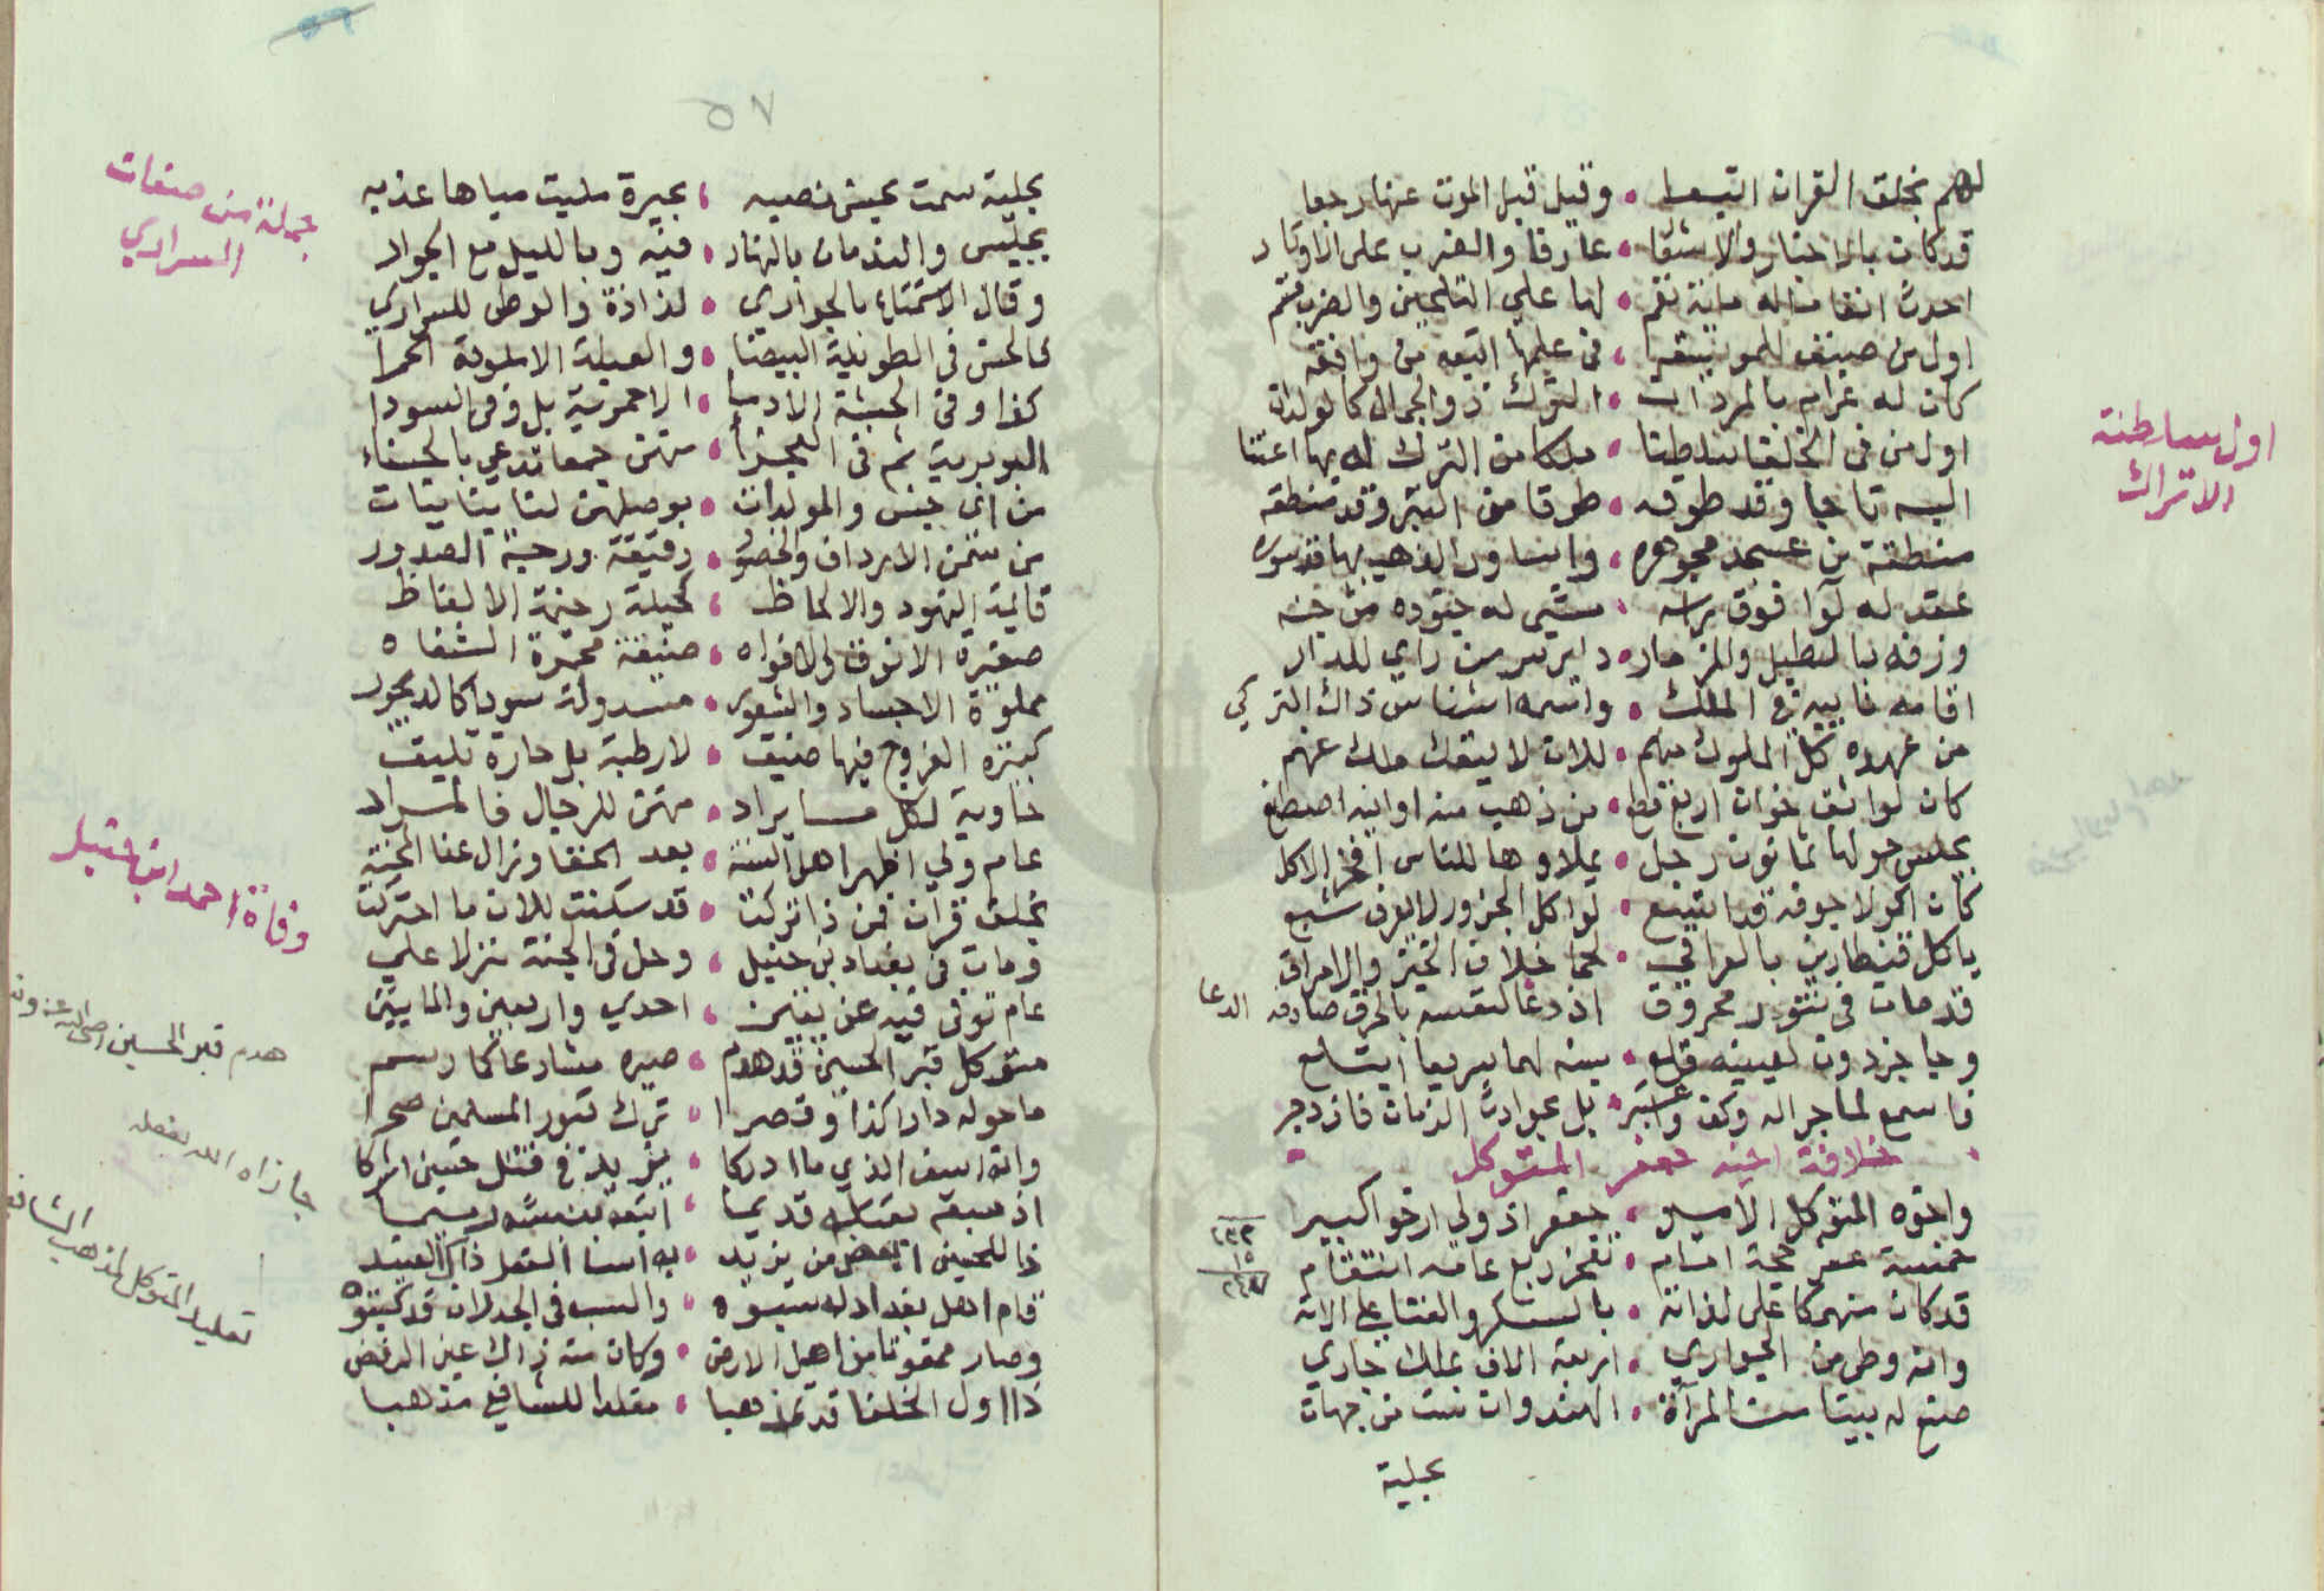 لهم بخلق القران اتبعا • وقيل قبل الموت عنها رجعا
قد كان بالاخبار والاشعا • عارفا والضرب على الاوتار
احدث انغاما له مائة نغم • لها على التلحين والضرب
اول من صنف للموسيقا • في علمها
كان له غرام بالمرد ات • الترك ذو الجمال كالولدان
اول من في الخلفا سلطنا • ملكا من الترك له بها اعتنا
البسه تاجا وقد طوقه • طوقا من التبر وقد منطقه
منطقة من عسجد مجوهره • واساور الذهب بها قد سوره
عقد له لوا فوق راسه • مشى له جنوده من جنسه
وزفه بالطبل والمزمار • داير سر من راي للمدار
اقامه نايبه في الملك • واسمه اشناس ذاك التركي
من عهده كل الملوك منهم • للان لا ينفك ملك عنهم
كان لواثق خوان اربع قطع • من ذهب منه اوانيه اصطنع
يجلس حولها ثمانون رجل • يملاوها للناس افخر الاكل
كان اكولا جوفه قد اتسع • لو اكل الجزور لا يعرف شبع
ياكل قنطارين بالعراقي • لحما خلاف الخبز والامراق
قد مات في تنور محروق اذ دعا لنفسه بالحرق صادفه الدعا
وجا جرذون لعينيه قلع • بسنه لهما سريعا ابتلع
فاسمع لما جرا له وكف واعتبر • بل بحوادث الزمان فازدجر
• خلافة اخيه جعفر المتوكل •
واخوه المتوكل الامير • جعفر اذ ولي ارخوا كبير
٢٣٢
١٥
٢٤٧
خمسة عشر حجة اقام •
قد كان منهمكا على لذاته • بالسكر والغنا على الاته
وانه وطى من الجواري • اربعة الاف بملك جاري
صنع له بيتا من المرآة • الهندوان ست من جهات
بجلية
اول سلطنة
الاتراك
٥٧
بجلية سمت بحيض نصيبه • بحيرة مليت مياها عذبه
يجلس والندمان بالنهار • فيه وبالليل مع الجوار
وقال الاستمتاع بالجواري • لذاذة والوطى للسراري
كالحسن في الطويلة البيضا • والعبلة الاملودة الحمرا
كذا وفي الحبشة الادما • الاحمرية بل وفي السودا
البربرية ثم في • منهن جمعا تدعى بالحسناء
من اي جنس والمولدات • بوصلهن
من سمن الارداف والخصور • رقيقة ورحبة الصدور
قائمة النهود والالحاظ • كحيلة رخيمة الالفاظ
صغيرة الانوف والافواه • ضيقة محمرة الشفاه
مملوة الاجساد والشعور • مسدولة سودا كالديجور
كبيرة الفروج فيها ضيق • لا رطبة بل حارة تليق
حاوية لكل ما يراد • منهن للرجال فالمراد
عام ولي اظهر اهل السنة • بعد الخفا وزال عنا المحنة
بخلق قران فمن ذا تركت • قد سكنت للان ما احتركت
ومات في بغداد بن حنبل • وحل في الجنة منزلا علي
عام توفي فيه عن يقين • احدى واربعين والمايتين
متوكل قبر الحسين قد هدم • صيره مشارعا كما رسم
ما حوله دارا كذا وقصرا • ترك قبور المسلمين صحرا
وانه اسف الذي ما ادركا • يزيد في قتل حسين اشركا
اذ سبقه بقتله قديما • اتبعه بنبشه رميما
ذا للحسين ابغض من يزيد • به اسا الفعل ذاك العنيد
قام اهل بغداد له سبوه • والسب في الجدران قد كتبوه
وصار ممقوتا من اهل الارض • وكان منه ذاك عين الرفض
ذا اول الخلفا قد تمذهبا • مقلدا للشافعي مذهبا
جملة من صفات
السراري
وفاة احمد ابن حنبل
هدم قبر الحسين
جازاه الله بفعله
تقليد المتوكل لمذهب الشافعي